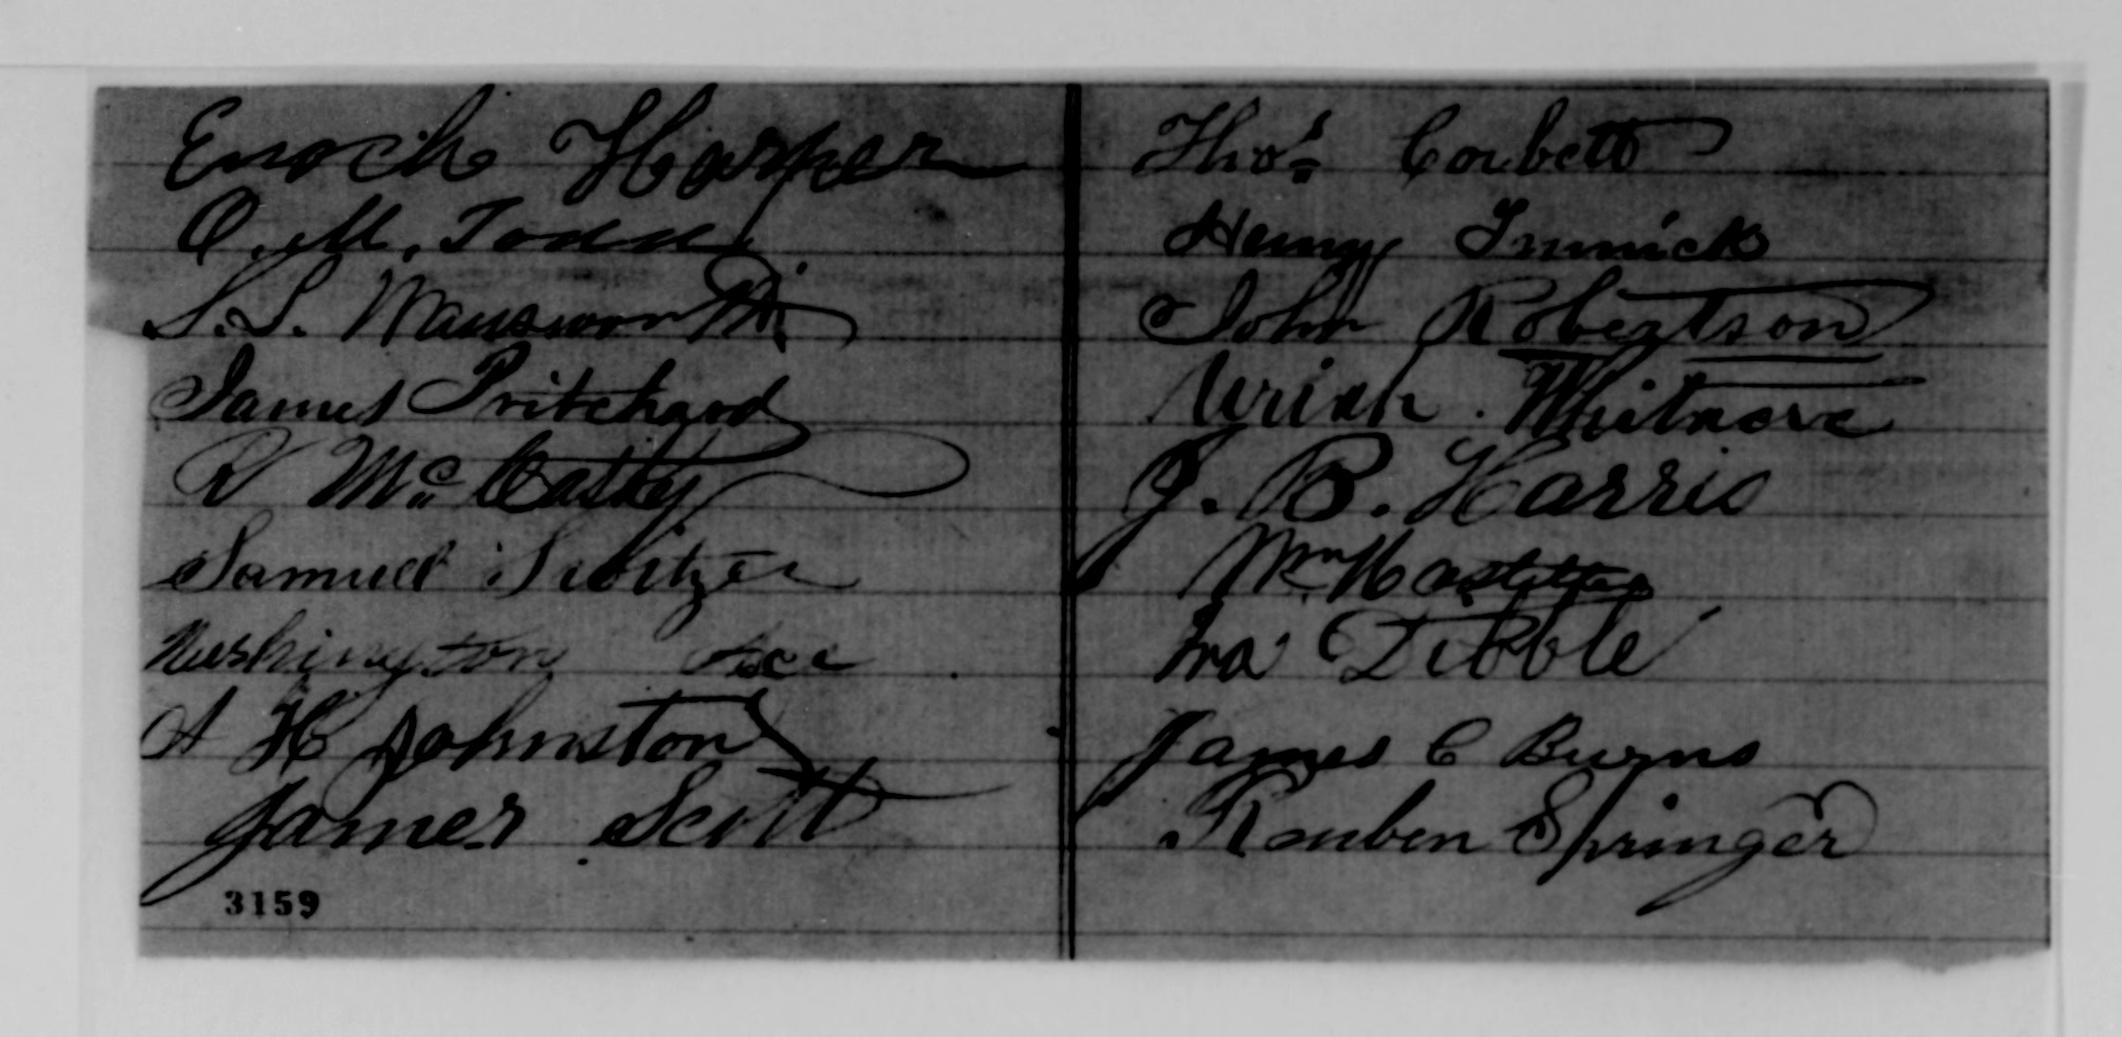 Enoch Harper
O. M. Todd
S. S.
James Pritchard
R McCasky
Samuel Switzer
Wushington
A H Johnston
James Scott
3159
Thos. Corbett
Henry
John Robertson
Uriah Whitmore
J. B. Harris
Wm
Ira Dibble
James C Burns
Reuben Springer